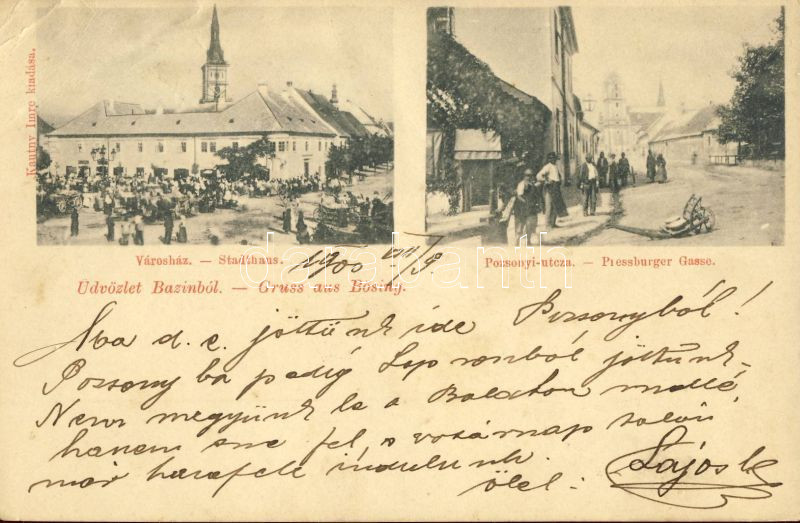 Kautny Imre kiadása.
Városház. — Stadthaus.
Pozsonyi-utcza. — Pressburger Gasse.
1900 VIII/9.
Üdvözlet Bazinból. — Gruss aus Bösing.
Ma d. e. jöttünk ide Pozsonyból!
Pozsonyba pedig Sopronból jöttünk.
Nem megyünk le a Balaton mellé,
hanem fel, s vasárnap
már hazafelé indulunk.
ölel: Lajos
darabanth